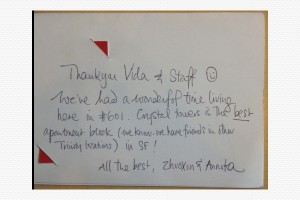 Thankyou Vida & Staff ☺
We've had a wonderful time living
here in #601. Crystal towers is the best
apartment block (we know, we have friends in other
Trinity locations) in SF!
All the best, & Annita